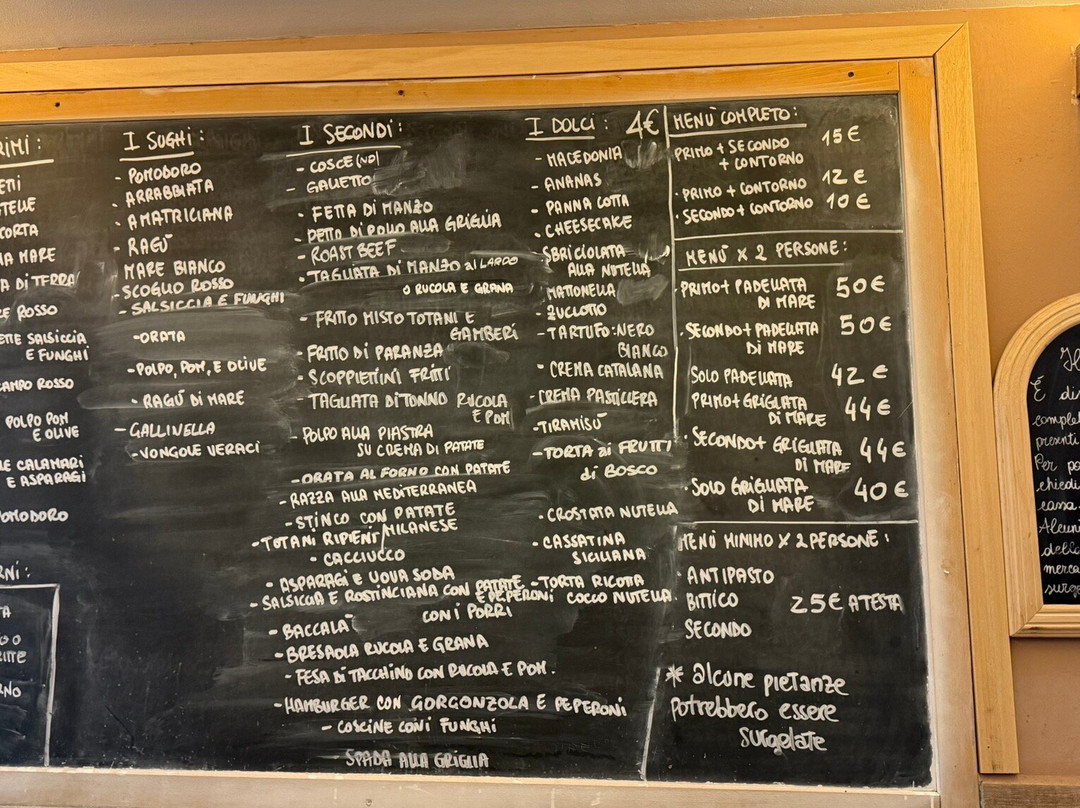 RIMI:
ETTI
TELLE
CORTA
IA MARE
A DI TERRA
E ROSSO
ETTE SALSICCIA
E FUNGHI
CAMPO ROSSO
POLPO POM
E OLIVE
LE CALAMARI
E ASPARAGI
POMODORO
RNI:
TA
O O
RITTE
RNO
I SUGHI:
- POMODORO
- ARRABBIATA
- AMATRICIANA
- RAGÙ
MARE BIANCO
- SCOGLIO ROSSO
- SALSICCIA E FUNGHI
- ORATA
- POLPO, POM, E OLIVE
- RAGÙ DI MARE
- GALLINELLA
- VONGOLE VERACI
I SECONDI:
- COSCE (NO)
- GALLETTO
- FETTA DI MANZO
- PETTO DI POLLO ALLA GRIGLIA
- ROAST BEEF
- TAGLIATA DI MANZO al LARDO
O RUCOLA E GRANA
- FRITTO MISTO TOTANI E
GAMBERI
- FRITTO DI PARANZA
- SCOPPIETTINI FRITTI
- TAGLIATA DI TONNO RUCOLA
E POM
- POLPO ALLA PIASTRA
SU CREMA DI PATATE
- ORATA AL FORNO CON PATATE
- RAZZA ALLA MEDITERRANEA
- STINCO CON PATATE
- TOTANI RIPIENI / MILANESE
- CACCIUCCO
- ASPARAGI E UOVA SODA
- SALSICCIA E ROSTINCIANA CON PATATE
E PEPERONI
CON I PORRI
- BACCALA'
- BRESAOLA RUCOLA E GRANA
- FESA DI TACCHINO CON RUCOLA E POM.
- HAMBURGER CON GORGONZOLA E PEPERONI
- COSCINE CON I FUNGHI
SPADA ALLA GRIGLIA
I DOLCI: 4€
- MACEDONIA
- ANANAS
- PANNA COTTA
- CHEESECAKE
SBRICIOLATA
ALLA NUTELLA
MATTONELLA
- ZUCCOTTO
- TARTUFO: NERO
BIANCO
- CREMA CATALANA
- CREMA PASTICCERA
- TIRAMISÙ
- TORTA ai FRUTTI
di BOSCO
- CROSTATA NUTELLA
- CASSATINA
SICILIANA
- TORTA RICOTTA
COCCO NUTELLA
MENÙ COMPLETO:
PRIMO + SECONDO 15€
+ CONTORNO
· PRIMO + CONTORNO 12€
· SECONDO + CONTORNO 10€
MENÙ X 2 PERSONE:
· PRIMO + PADELLATA 50€
DI MARE
· SECONDO + PADELLATA 50€
DI MARE
SOLO PADELLATA 42€
PRIMO + GRIGLIATA 44€
DI MARE
· SECONDO + GRIGLIATA 44€
DI MARE
· SOLO GRIGLIATA 40€
DI MARE
MENÙ MINIMO X 2 PERSONE:
· ANTIPASTO
BITTICO 25€ A TESTA
SECONDO
* alcune pietanze
potrebbero essere
surgelate
È di
comple
presenti
Per po
chiedi
cassa.
Alcun
della
merca
surge